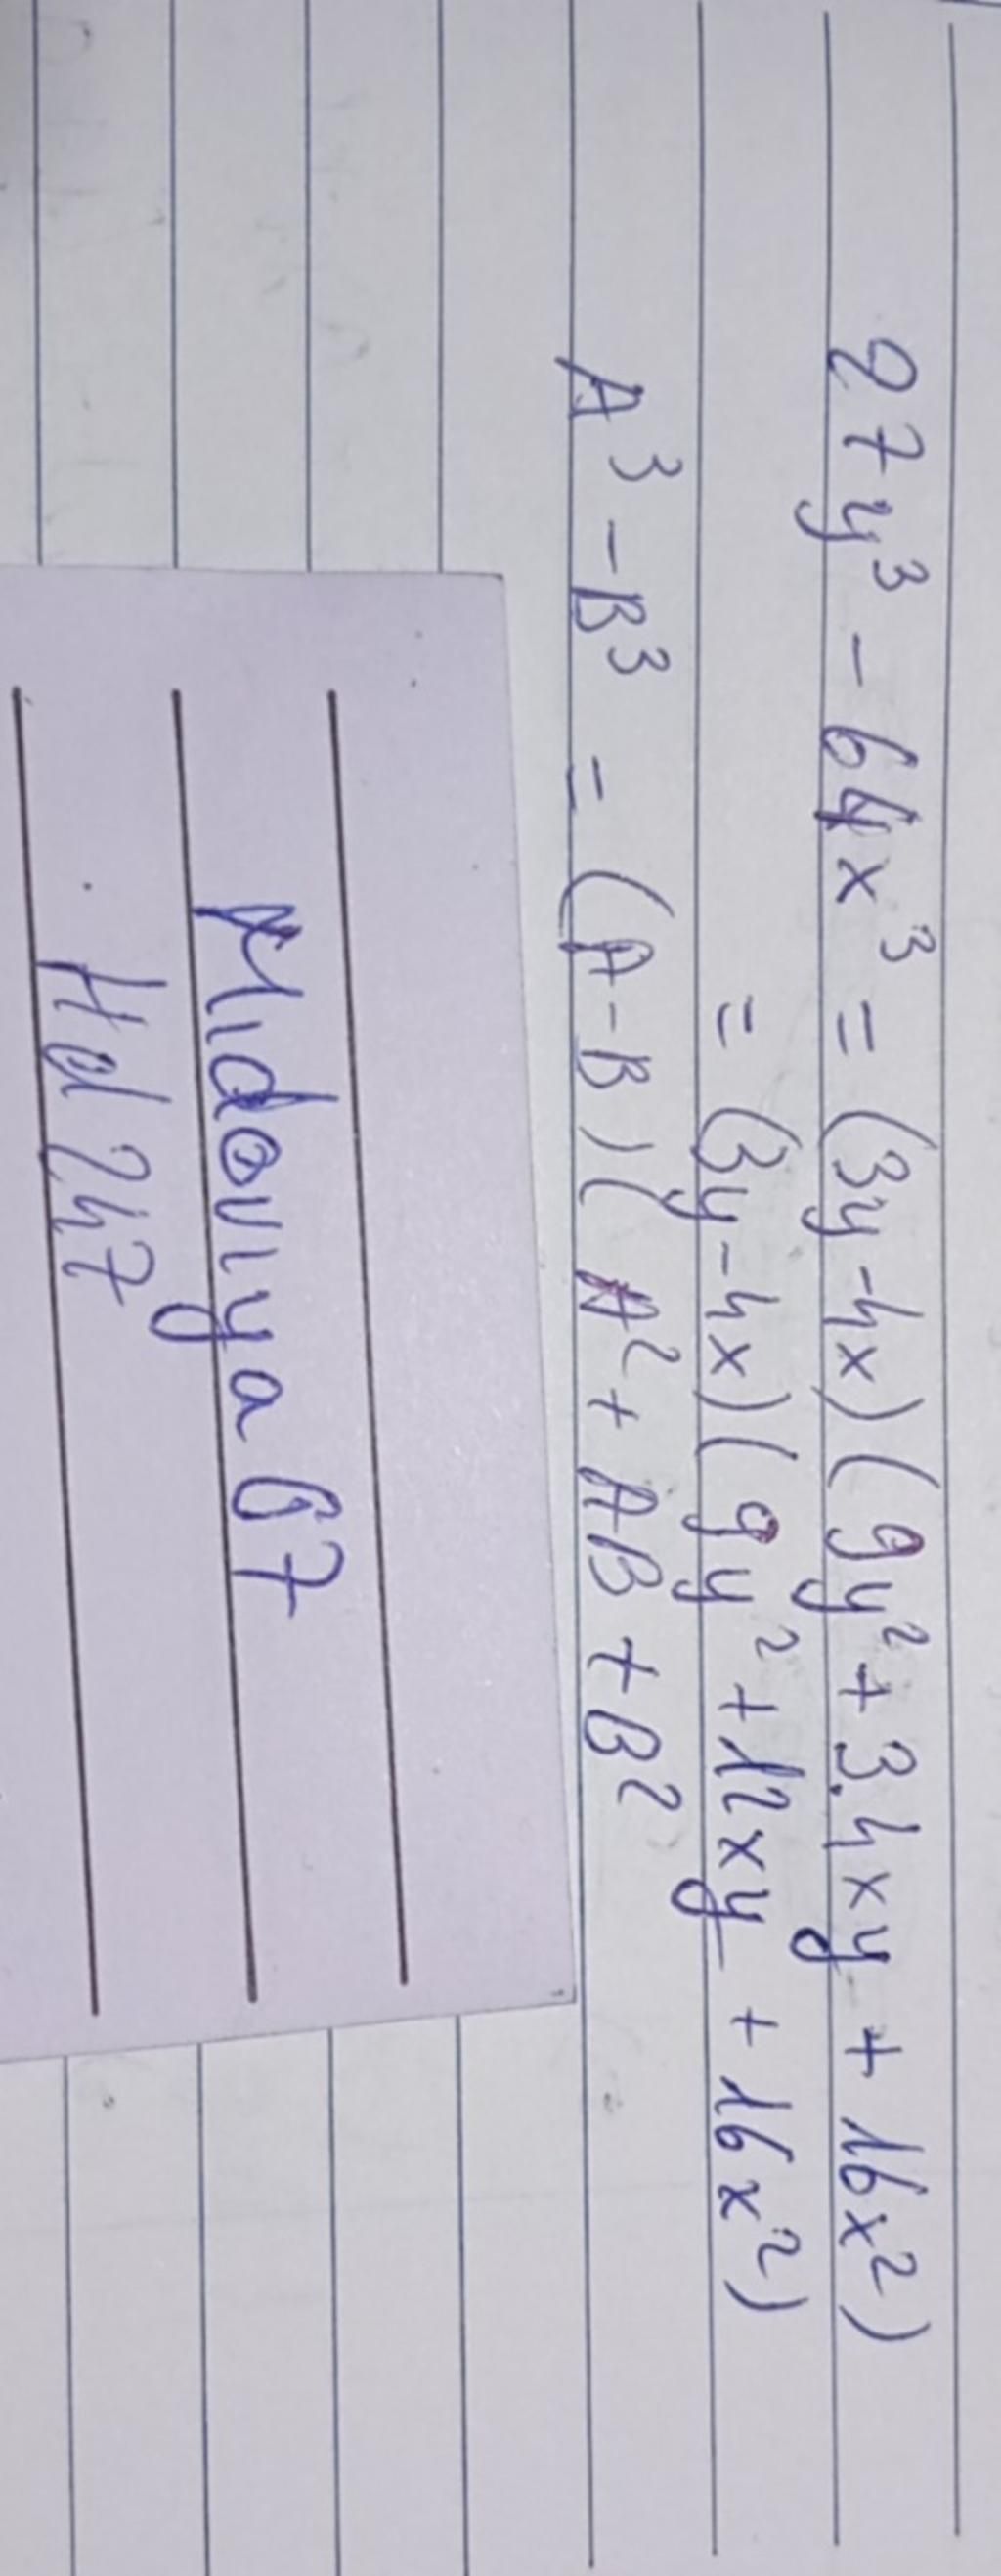 27y³ - 64x³ = (3y-4x)(9y² + 3.4xy + 16x²)
= (3y-4x)(9y² + 12xy + 16x²)
A³ - B³ = (A-B)(A² + AB + B²
Midoviya67
Hd247